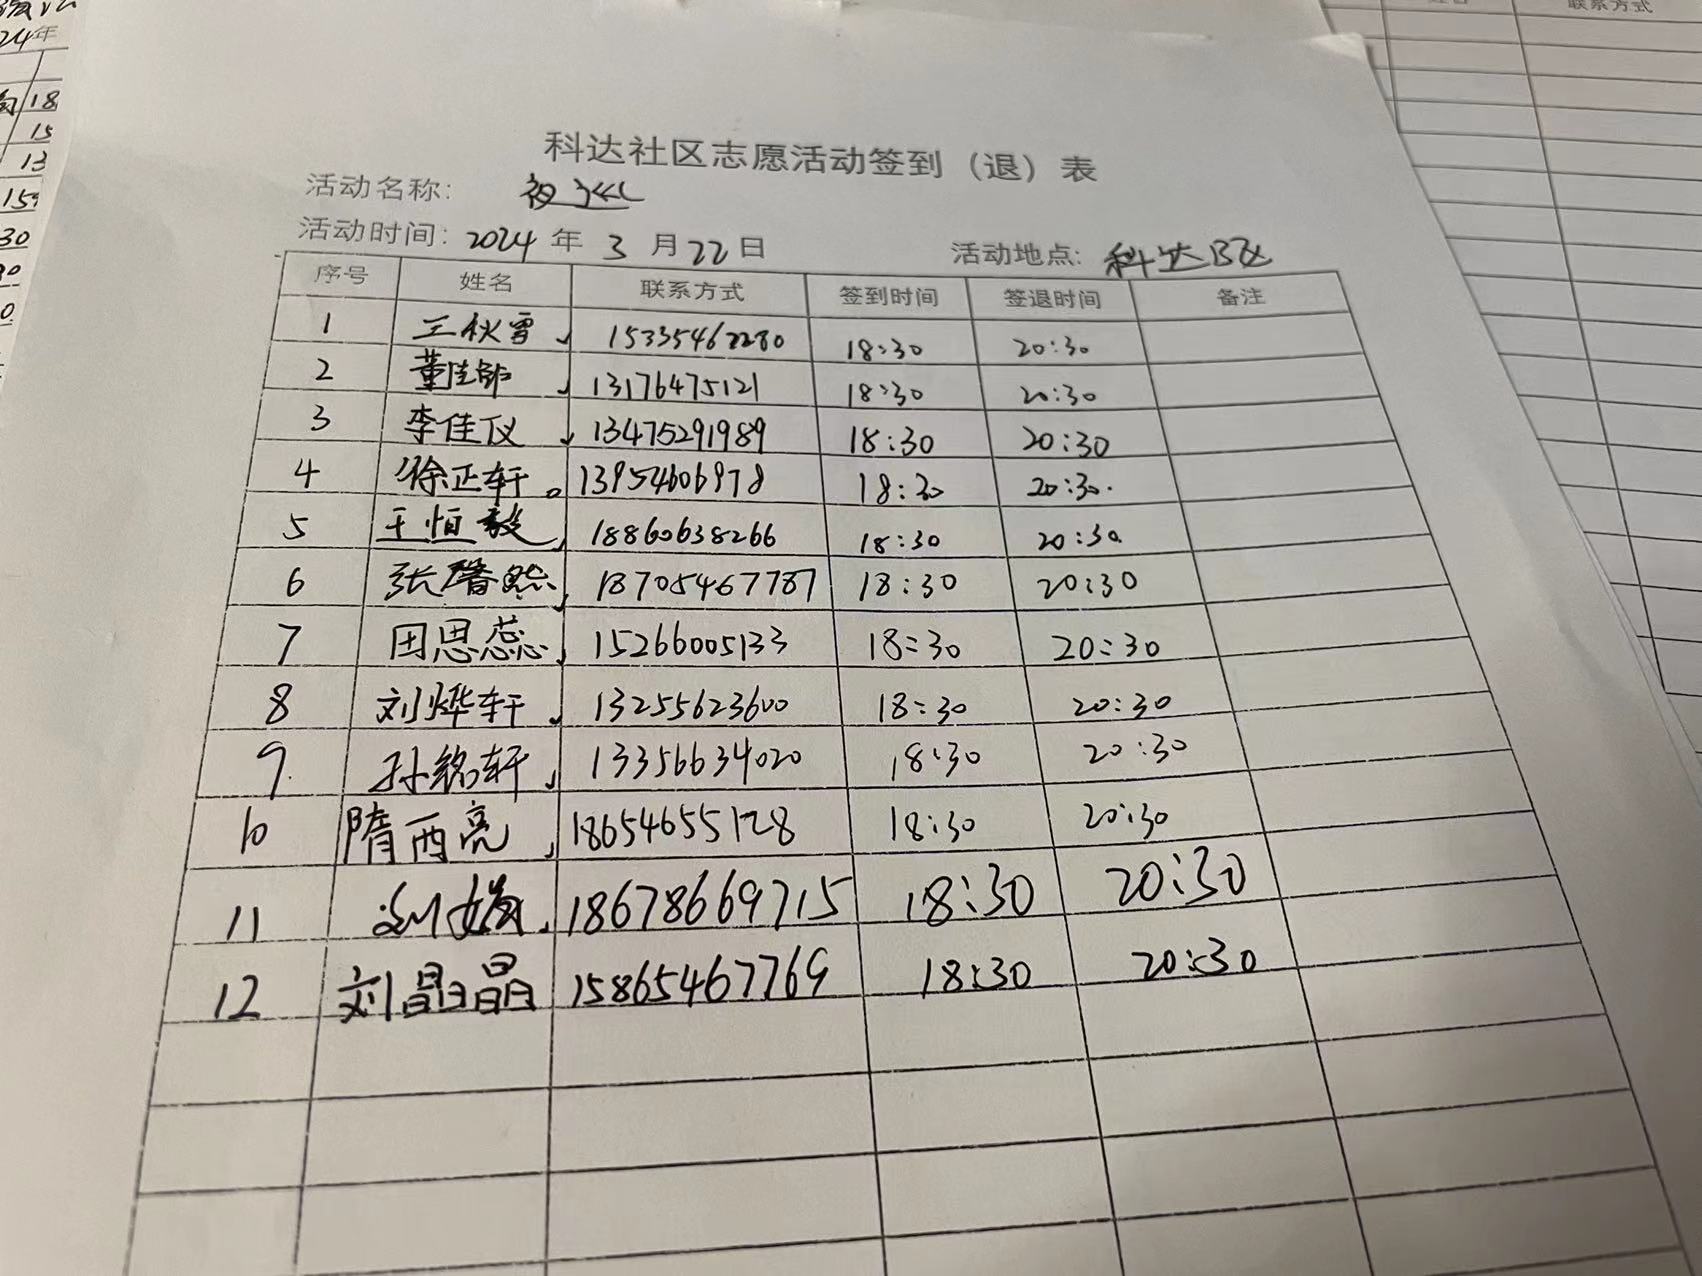 科达社区志愿活动签到（退）表
活动名称：
活动时间：2024 年 3 月 22 日 活动地点：科达B区
序号 姓名 联系方式 签到时间 签退时间 备注
1 王秋雪 15335462280 18:30 20:30
2 董佳 13176475121 18:30 20:30
3 李佳仪 13475291989 18:30 20:30
4 徐正轩 13954606978 18:30 20:30
5 王恒毅 18860638266 18:30 20:30
6 张馨然 18705467787 18:30 20:30
7 田思蕊 15266005133 18:30 20:30
8 刘烨轩 13255623600 18:30 20:30
9 孙铭轩 13356634020 18:30 20:30
10 隋西亮 18654655128 18:30 20:30
11 刘娟 18678669715 18:30 20:30
12 刘晶晶 15865467769 18:30 20:30
联系方式
24年
18
15
13
159
30